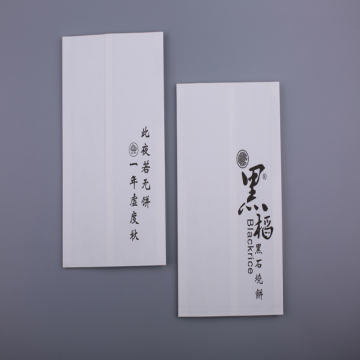 此夜若无饼
一年虚度秋
黑稻
®
Blackrice
黑石烧饼